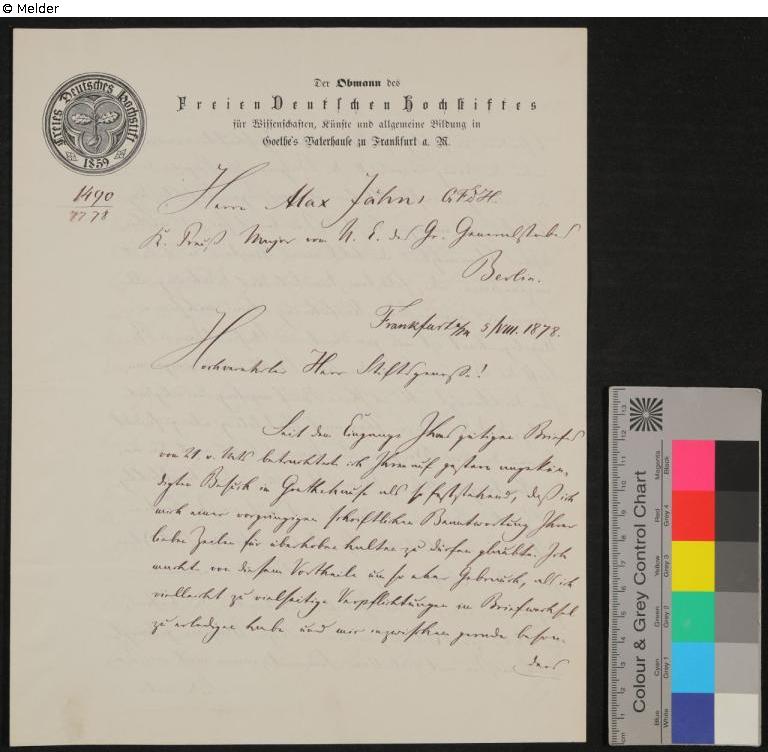 © Melder
Der Obmann des
Freien Deutschen Hochstiftes
für Wissenschaften, Künste und allgemeine Bildung in
Goethe's Vaterhause zu Frankfurt a. M.
Freies Deutsches Hochstift
1859
1490
Herrn Max Jähns
K. Preuß. Major vom N. E. des Gr. Generalstabes
Berlin.
Frankfurt a/M 5/VIII. 1878.
Hochverehrter Herr Stiftsgenosse!
Seit dem Eingange Ihres gütigen Briefes
vom 21 v. Mts betrachtete ich Ihren auf gestern angekün-
digten Besuch im Goethehause als so feststehend, daß ich
mich einer vorgängigen schriftlichen Beantwortung Ihrer
lieben Zeilen für überhoben halten zu dürfen glaubte. Ich
machte von diesem Vortheile um so eher Gebrauch, als ich
vielleicht zu vielseitige Verpflichtungen im Briefwechsel
zu erledigen habe und mir inzwischen gerade beson-
ders
Colour & Grey Control Chart
Blue
Cyan
Green
Yellow
Red
Magenta
White
Grey 1
Grey 2
Grey 3
Grey 4
Black
cm 1 2 3 4 5 6 7 8 9 10 11 12 13